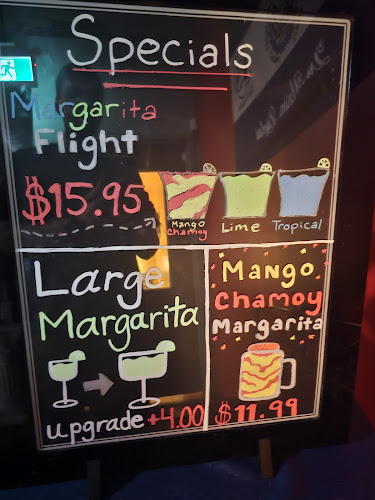 Specials
Margarita
Flight
$15.95
Mango
Chamoy
Lime
Tropical
Large
Margarita
upgrade +4.00
Mango
Chamoy
Margarita
$11.99